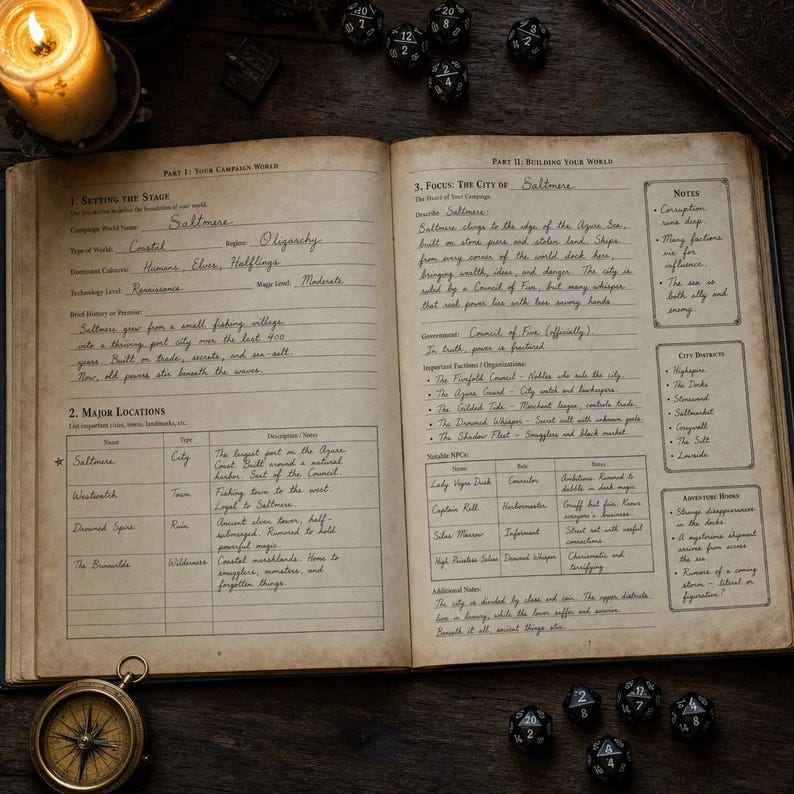 PART I: YOUR CAMPAIGN WORLD
1. SETTING THE STAGE
Use this section to define the foundation of your world.
Campaign World Name: Saltmere
Type of World: Coastal Regime: Oligarchy
Dominant Cultures: Humans, Elves, Halflings
Technology Level: Renaissance Magic Level: Moderate
Brief History or Premise:
Saltmere grew from a small fishing village
into a thriving port city over the last 400
years. Built on trade, secrets, and sea-salt.
Now, old powers stir beneath the waves.
2. MAJOR LOCATIONS
List important cities, towns, landmarks, etc.
Name Type Description / Notes
Saltmere City The largest port on the Azure
Coast. Built around a natural
harbor. Seat of the Council.
Westwatch Town Fishing town to the west.
Loyal to Saltmere.
Drowned Spire Ruin Ancient elven tower, half-
submerged. Rumored to hold
powerful magic.
The Brinewilds Wilderness Coastal marshlands. Home to
smugglers, monsters, and
forgotten things.
6
PART II: BUILDING YOUR WORLD
3. FOCUS: THE CITY OF Saltmere
The Heart of Your Campaign
Describe Saltmere:
Saltmere clings to the edge of the Azure Sea,
built on stone piers and stolen land. Ships
from every corner of the world dock here,
bringing wealth, ideas, and danger. The city is
ruled by a Council of Five, but many whisper
that real power lies with less savory hands.
Government: Council of Five (officially).
In truth, power is fractured
Important Factions / Organizations:
• The Fivefold Council - Nobles who rule the city.
• The Azure Guard - City watch and lawkeepers.
• The Gilded Tide - Merchant league, controls trade.
• The Drowned Whisper - Secret cult with unknown goals.
• The Shadow Fleet - Smugglers and black market.
Notable NPCs:
Name Role Notes
Lady Dusk Councilor Ambitious. Rumored to
dabble in dark magic.
Captain Rell Harbormaster Gruff but fair. Knows
everyone's business.
Silas Marrow Informant Street rat with useful
connections.
High Priestess Drowned Whisper Charismatic and
terrifying.
Additional Notes:
The city is divided by class and coin. The upper districts
live in luxury, while the lower suffer and survive.
Beneath it all, ancient things stir.
7
NOTES
• Corruption
runs deep.
• Many factions
vie for
influence.
• The sea is
both ally and
enemy.
CITY DISTRICTS
• Highspire
• The Docks
• Stoneward
• Saltmarket
• Greywall
• The Silt
• Lowside
ADVENTURE HOOKS
• Strange disappearances
in the docks.
• A mysterious shipment
arrives from across
the sea.
• Rumors of a coming
storm - literal or
figurative?